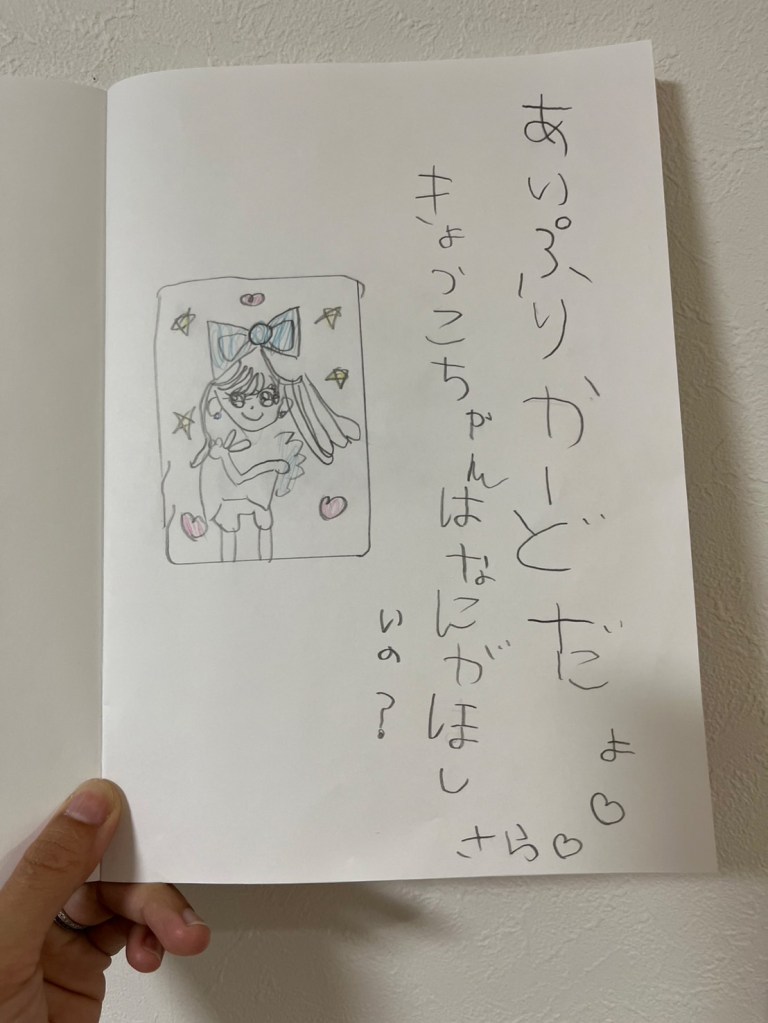 あいぷりカードだよ♡
きょうこちゃんはなにがほし
いの?
さら♡